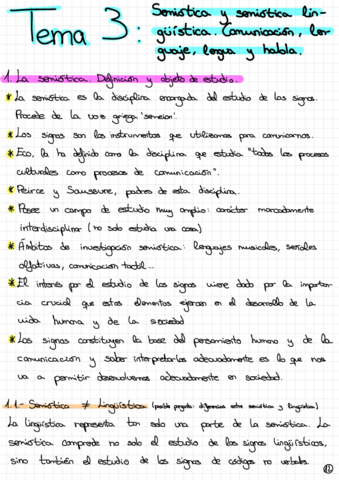 Tema 3: Semiótica y semiótica lin-
güística. Comunicación, len-
guaje, lengua y habla.
1. La semiótica. Definición y objeto de estudio.
* La semiótica es la disciplina encargada del estudio de los signos.
Procede de la voz griega 'semeion'.
* Los signos son los instrumentos que utilizamos para comunicarnos.
* Eco, la ha definido como la disciplina que estudia "todos los procesos
culturales como procesos de comunicación".
* Peirce y Saussure, padres de esta disciplina.
* Posee un campo de estudio muy amplio: carácter marcadamente
interdisciplinar (no solo estudia una cosa)
* Ámbitos de investigación semiótica: lenguajes musicales, señales
olfativas, comunicación táctil...
* El interés por el estudio de los signos viene dado por la importan-
cia crucial que estos elementos ejercen en el desarrollo de la
vida humana y de la sociedad
* Los signos constituyen la base del pensamiento humano y de la
comunicación y saber interpretarlos adecuadamente es lo que nos
va a permitir desenvolvernos adecuadamente en sociedad.
1.1- Semiótica ≠ Lingüística (posible pregunta: diferencias entre semiótica y lingüística)
La lingüística representa tan solo una parte de la semiótica. La
semiótica comprende no solo el estudio de los signos lingüísticos,
sino también el estudio de los signos de códigos no verbales.